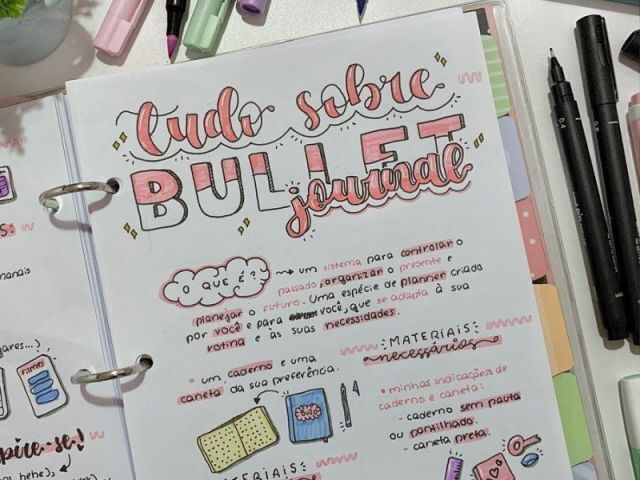 tudo sobre
BULLET
journal
O QUE É?
um sistema para controlar o
passado, organizar o presente e
planejar o futuro. Uma espécie de planner criado
por você e para você, que se adapta à sua
rotina e às suas necessidades.
MATERIAIS
necessários
• um caderno e uma
caneta da sua preferência.
• minhas indicações de
caderno e caneta:
- caderno sem pauta
ou pontilhado.
- caneta preta.
MATERIAIS
pire-se!
0.4